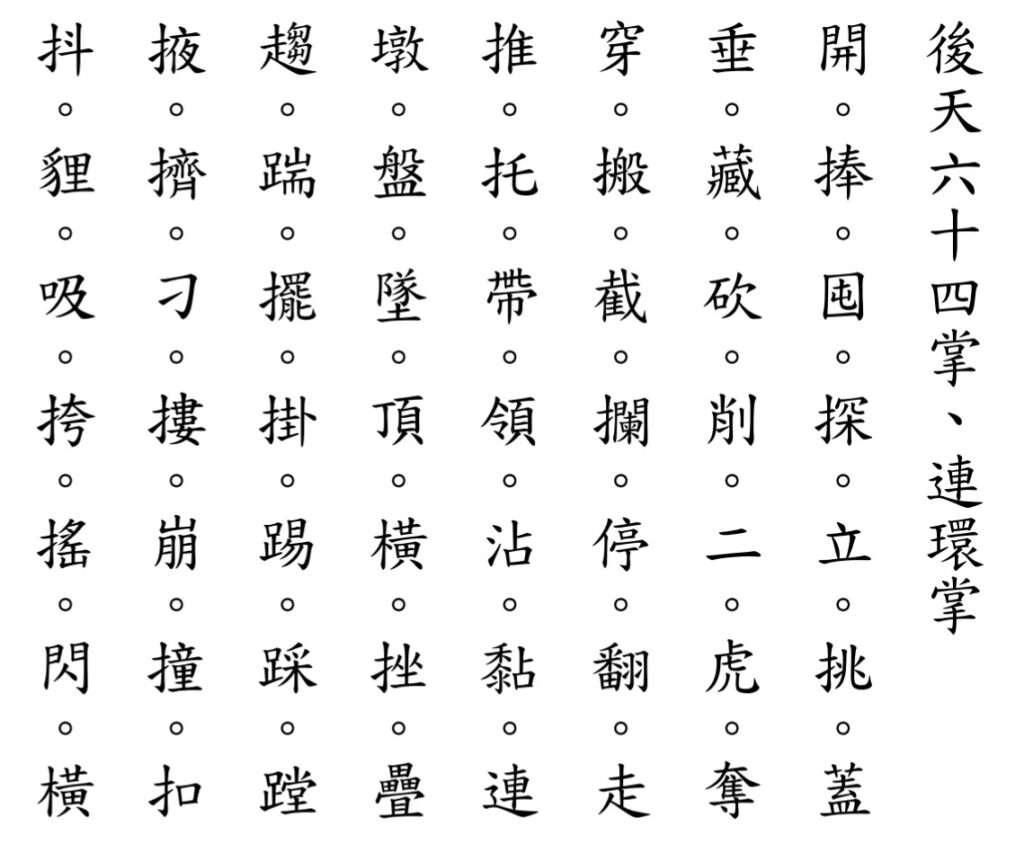 後天六十四掌、連環掌
開。捧。囤。探。立。挑。蓋
垂。藏。砍。削。二。虎。奪
穿。搬。截。攔。停。翻。走
推。托。帶。領。沾。黏。連
墩。盤。墜。頂。橫。挫。疊
趨。踹。擺。掛。踢。踩。蹚
掖。擠。刁。摟。崩。撞。扣
抖。貍。吸。挎。搖。閃。橫